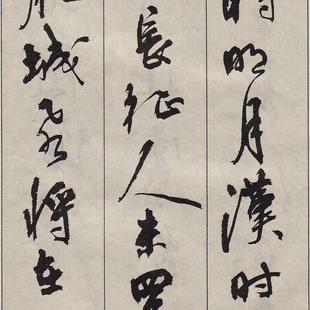 時明月漢时
長征人未還
龍城飛將在